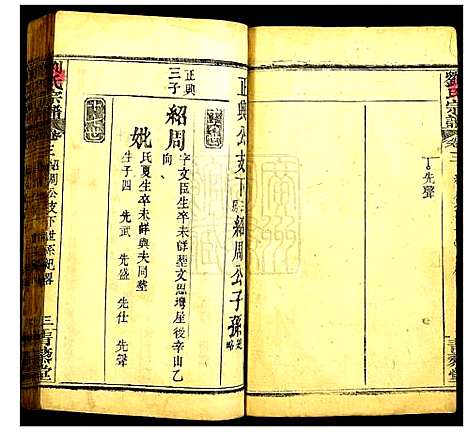 劉氏宗譜
卷三
先聲
青藜堂
正興公支下三房紹周公子孫
正興
三子
紹周
字文臣生卒未詳塟文思塆屋後辛山乙
向
妣
氏夏生卒未詳與夫同塟
生子四 先武 先盛 先仕 先聲
劉氏宗譜
卷三 紹周公支下世系紀畧
三
青藜堂